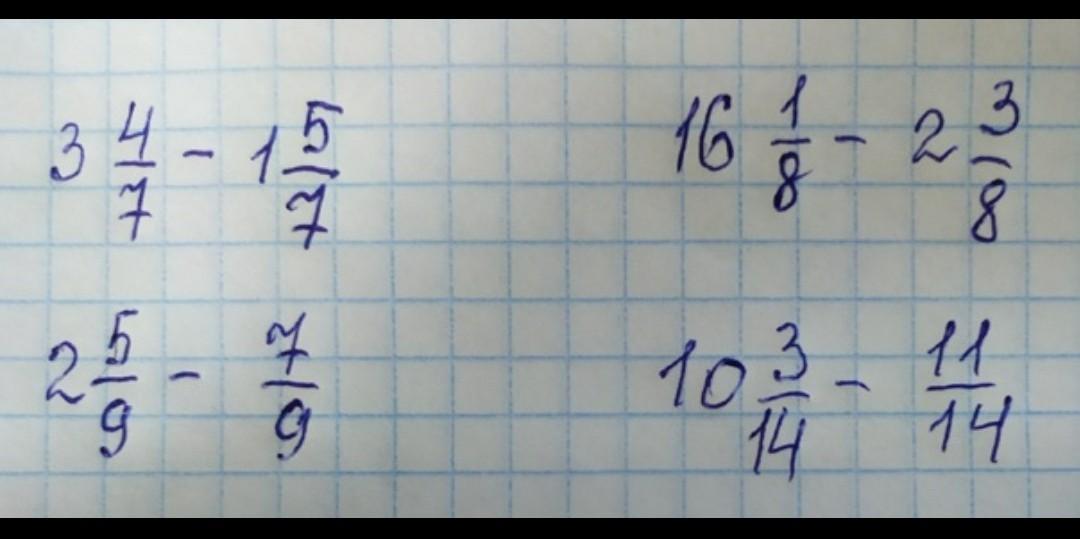 3 4/7 - 1 5/7
16 1/8 - 2 3/8
2 5/9 - 7/9
10 3/14 - 11/14